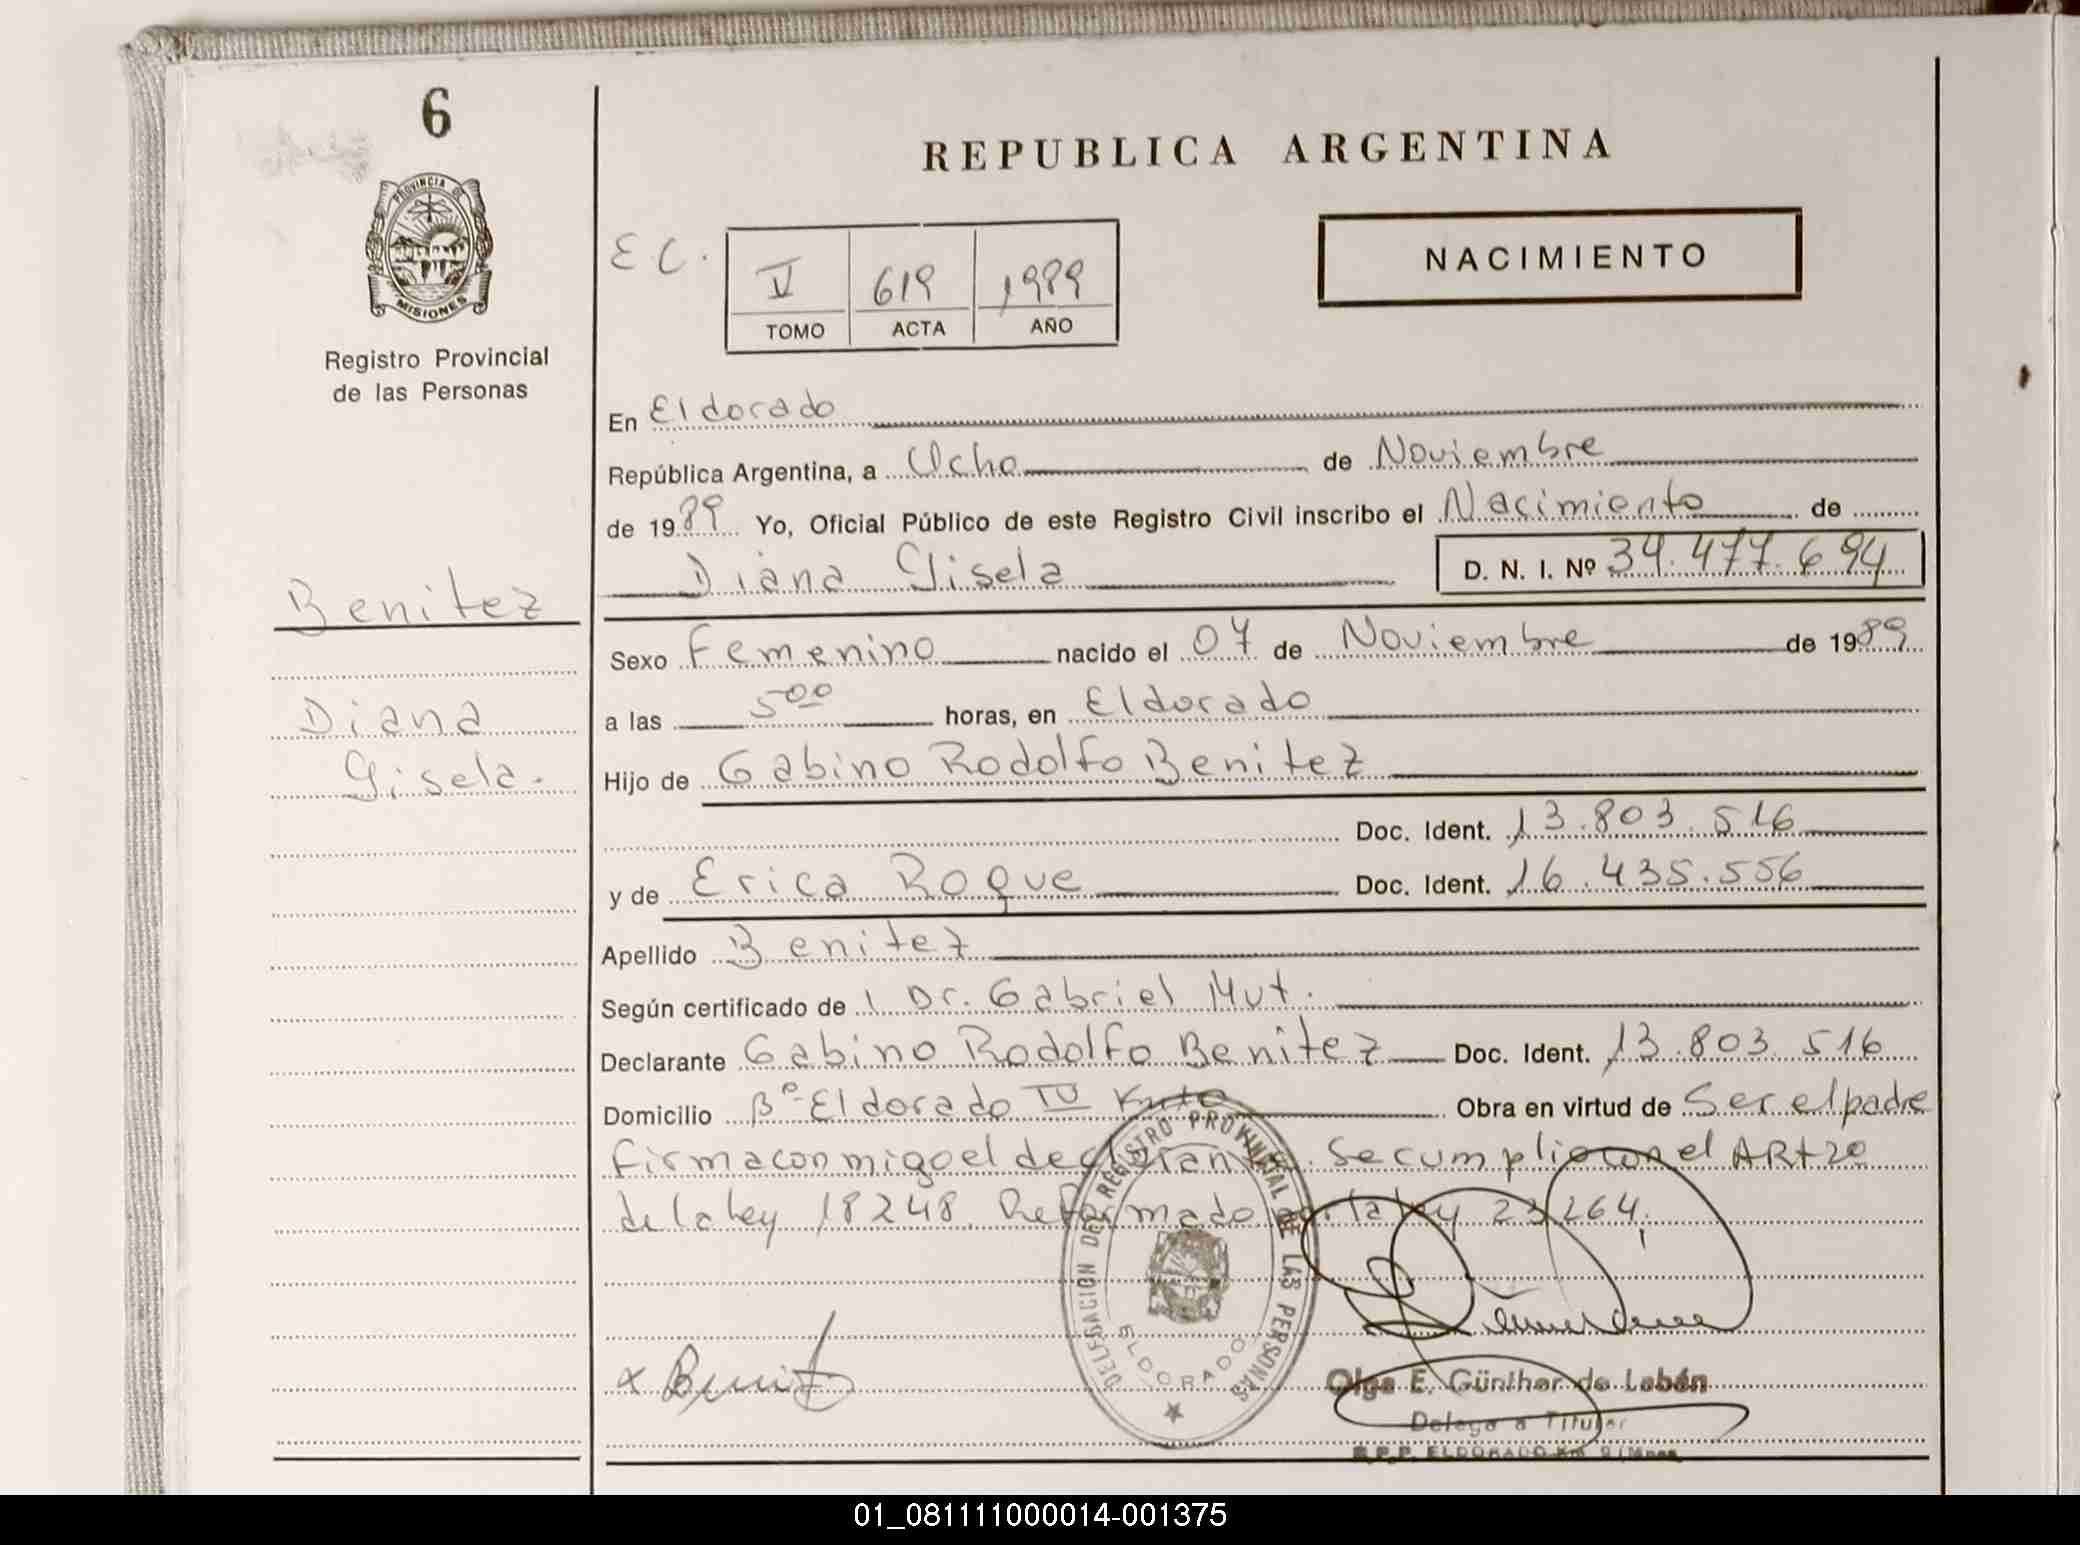 6
PROVINCIA DE
MISIONES
Registro Provincial
de las Personas
Benitez
Diana
Gisela.
REPUBLICA ARGENTINA
E C.
V 619 1989
TOMO ACTA AÑO
NACIMIENTO
En Eldorado
República Argentina, a Ocho de Noviembre
de 1989 Yo, Oficial Público de este Registro Civil inscribo el Nacimiento de
Diana Gisela D. N. I. Nº 34.477.694
Sexo Femenino nacido el 07 de Noviembre de 1989
a las 5 00 horas, en Eldorado
Hijo de Gabino Rodolfo Benitez
Doc. Ident. 13.803.516
y de Erica Roque Doc. Ident. 16.435.556
Apellido Benitez
Según certificado de Dr. Gabriel Mut.
Declarante Gabino Rodolfo Benitez Doc. Ident. 13.803.516
Domicilio Bº Eldorado IV Obra en virtud de Ser el padre
firma conmigo el declarante. Se cumplio con el ARt 20
de la ley 18248. Reformado la ley 23264.
DELEGACION DEL REGISTRO PROVINCIAL DE LAS PERSONAS
ELDORADO
x Benitez
Olga E. Günther de Labán
Delegada Titular
R.P.P. ELDORADO Km 9 (Mnes
01_081111000014-001375